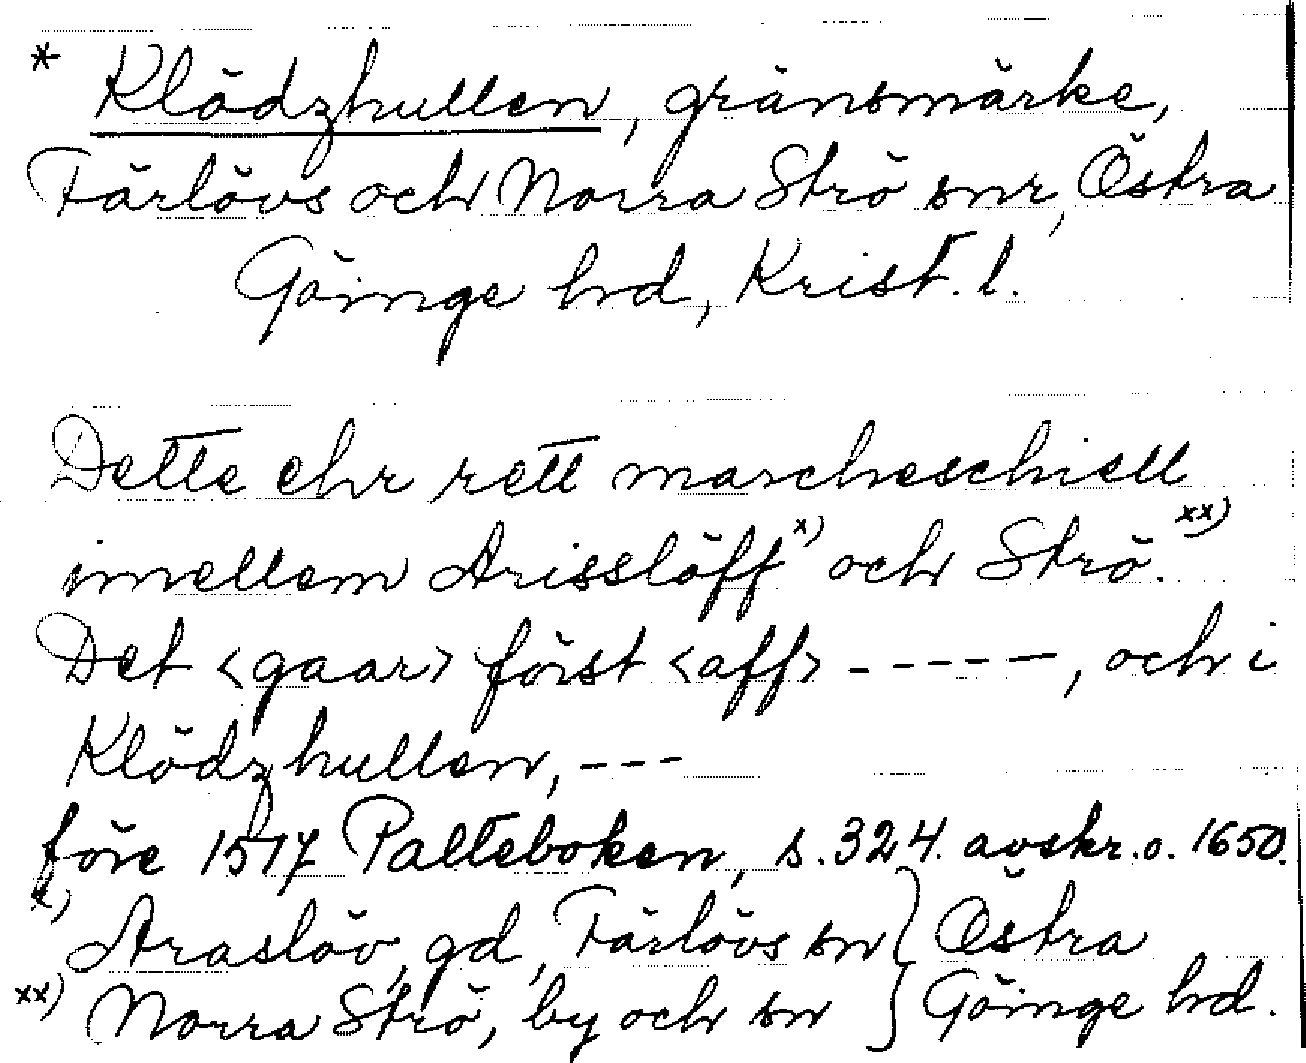 * Klödzhullen, gränsmärke,
Färlövs och Norra Strö snr, Östra
Göinge hd, Krist. l.
Dette ehr rett marcheschiell
imellem Arisslöff x) och Strö. xx)
Det <gaar> först <aff> -----, och i
Klödzhullen, ---
före 1517 Palteboken, s. 324. avskr. o. 1650.
x) Araslöv, gd, Färlövs sn } Östra
xx) Norra Strö, by och sn } Göinge hd.